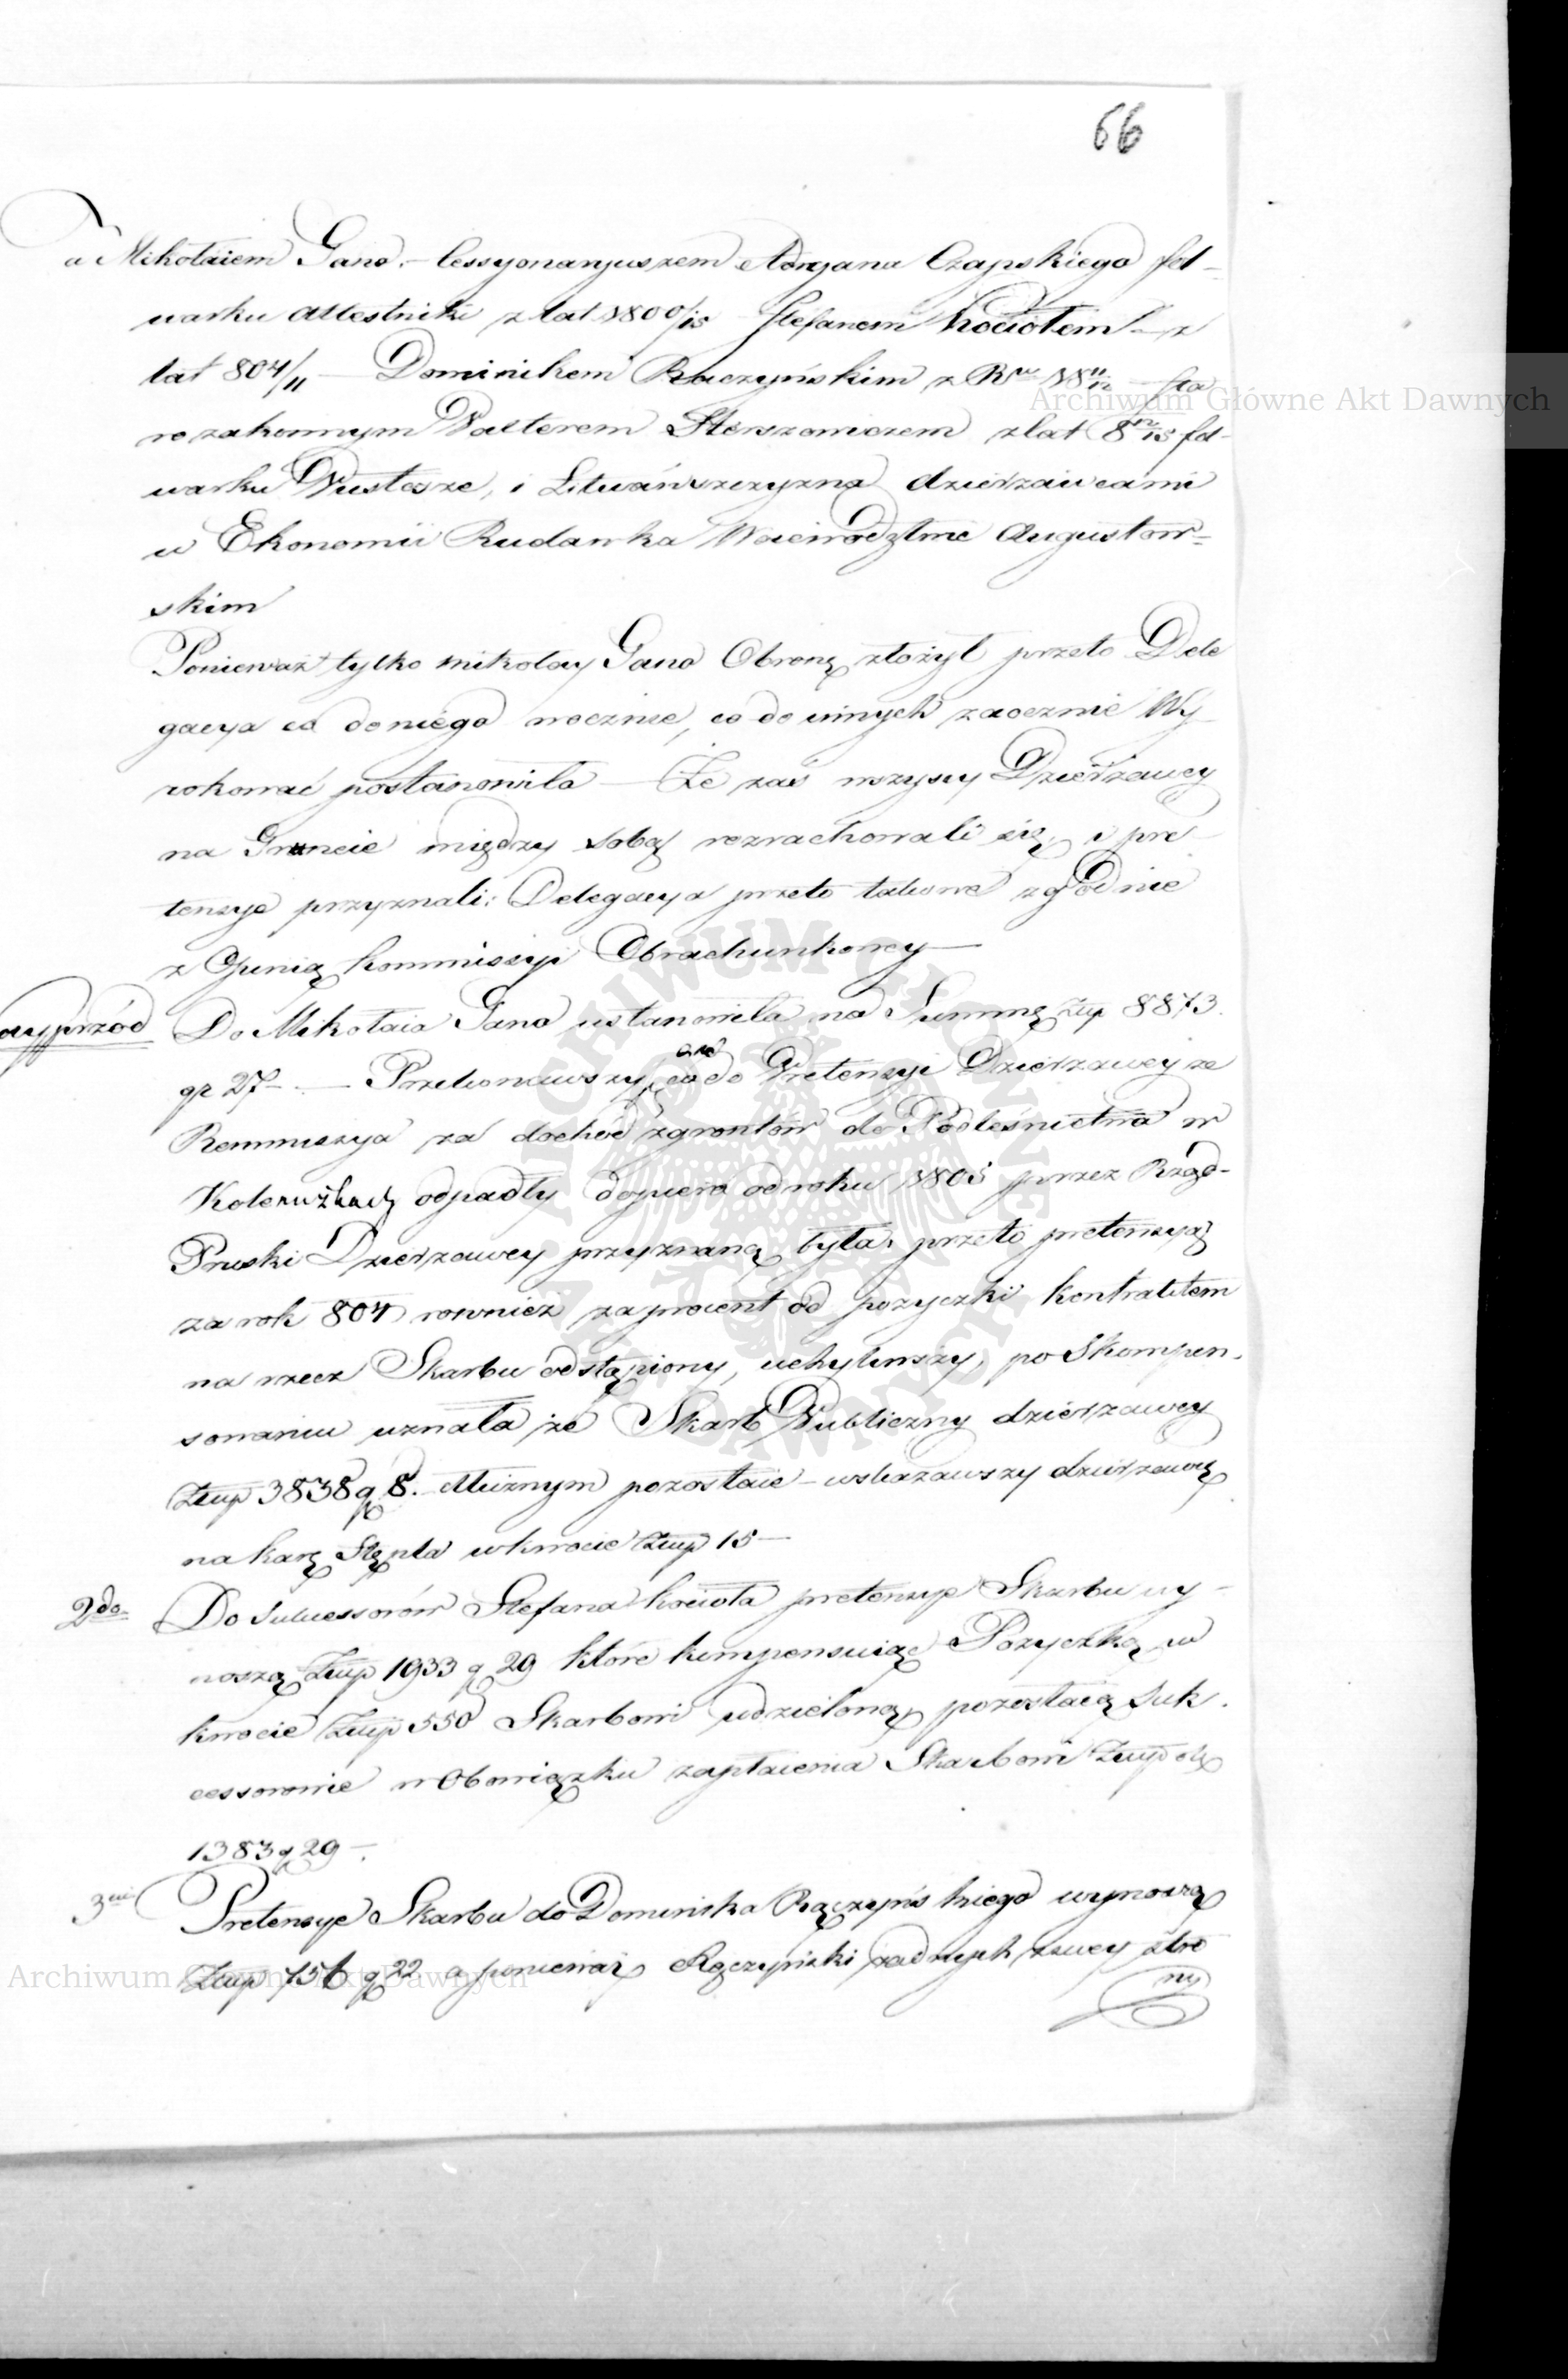 66
a Mikołaiem Gano.— Cessyonaryuszem Adryana Czapskiego fol-
warku z lat 1800/15 Stefanem Kociołem — z
lat 804/11 — Dominikem Raczyńskim z Ru 18 11/12 — Sta
rozakonnym Walterem z lat 8 12/15 fol-
warku i dzierzawcami
w Ekonomii Rudawka Woiewodztwie Augustow-
skim
Ponieważ tylko Mikołay Gano Obronę złożył przeto Dele
gacya co do niego ocznie, co do innych zaocznie Wy-
rokować postanowiła — Że zaś wszyscy Dzierżawcy
na Gruncie między sobą rozrachowali się, i pre-
tensye przyznali: Delegacya przeto takowe zgodnie
z Opinią Kommissyi Obrachunkowey —
ayprzód Do Mikołaia Gano ustanowiła na Summę Złłp 8873.
gr 27 — Przekonawszy co do Pretensyi Dzierzawcy że
Remmissya za dochód z gruntów do Podleśnictwa w
odpadły dopiero od roku 1805 przez Rząd-
Pruski Dzierzawcy przyznaną była, przeto pretensyą
za rok 804 rownież za procent od pożyczki kontraktem
na rzecz Skarbu odstąpiony, uchyliwszy, po Skompen-
sowaniu uznała że Skarb Publiczny dzierżawcy
Złłp 3838 g 8. dłużnym pozostaie — wskazawszy dzierzawcę
na karę Stępla w kwocie Złłp 15 —
2do Do Sukcessorów Stefana Kocioła pretensye Skarbu wy-
noszą Złłp 1933 g 29 które kompensuiąc Pożyczką w
kwocie Złłp 550 Skarbowi udzieloną, pozostaią Suk-
cessorowie w Obowiązku zapłacenia Skarbowi Złłp
1383 g 29 —.
3cie Pretensye Skarbu do Dominika Raczyńskiego wynoszą
Złłp 756 g 22 a ponieważ Raczyński żadnych z swey stro
ny
Archiwum Główne Akt Dawnych